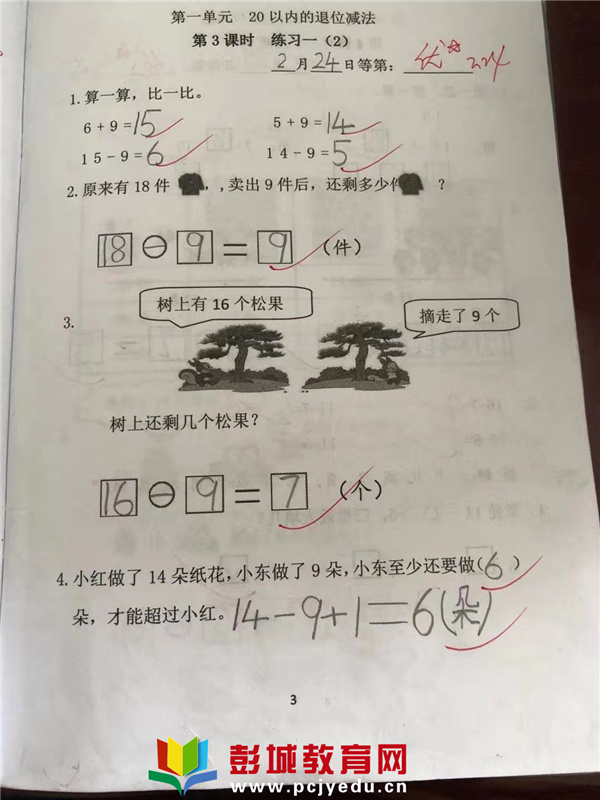 第一单元 20以内的退位减法
第3课时 练习一(2)
2月24日等第: 优☆ 2.24
1.算一算,比一比。
6+9=15 5+9=14
15-9=6 14-9=5
2.原来有18件 ,,卖出9件后,还剩多少件 ?
18⊖9=9(件)
3.
树上有16个松果
摘走了9个
树上还剩几个松果?
16⊖9=7(个)
4.小红做了14朵纸花,小东做了9朵,小东至少还要做(6)
朵,才能超过小红。14-9+1=6(朵)
3
彭城教育网
www.pcjyedu.cn